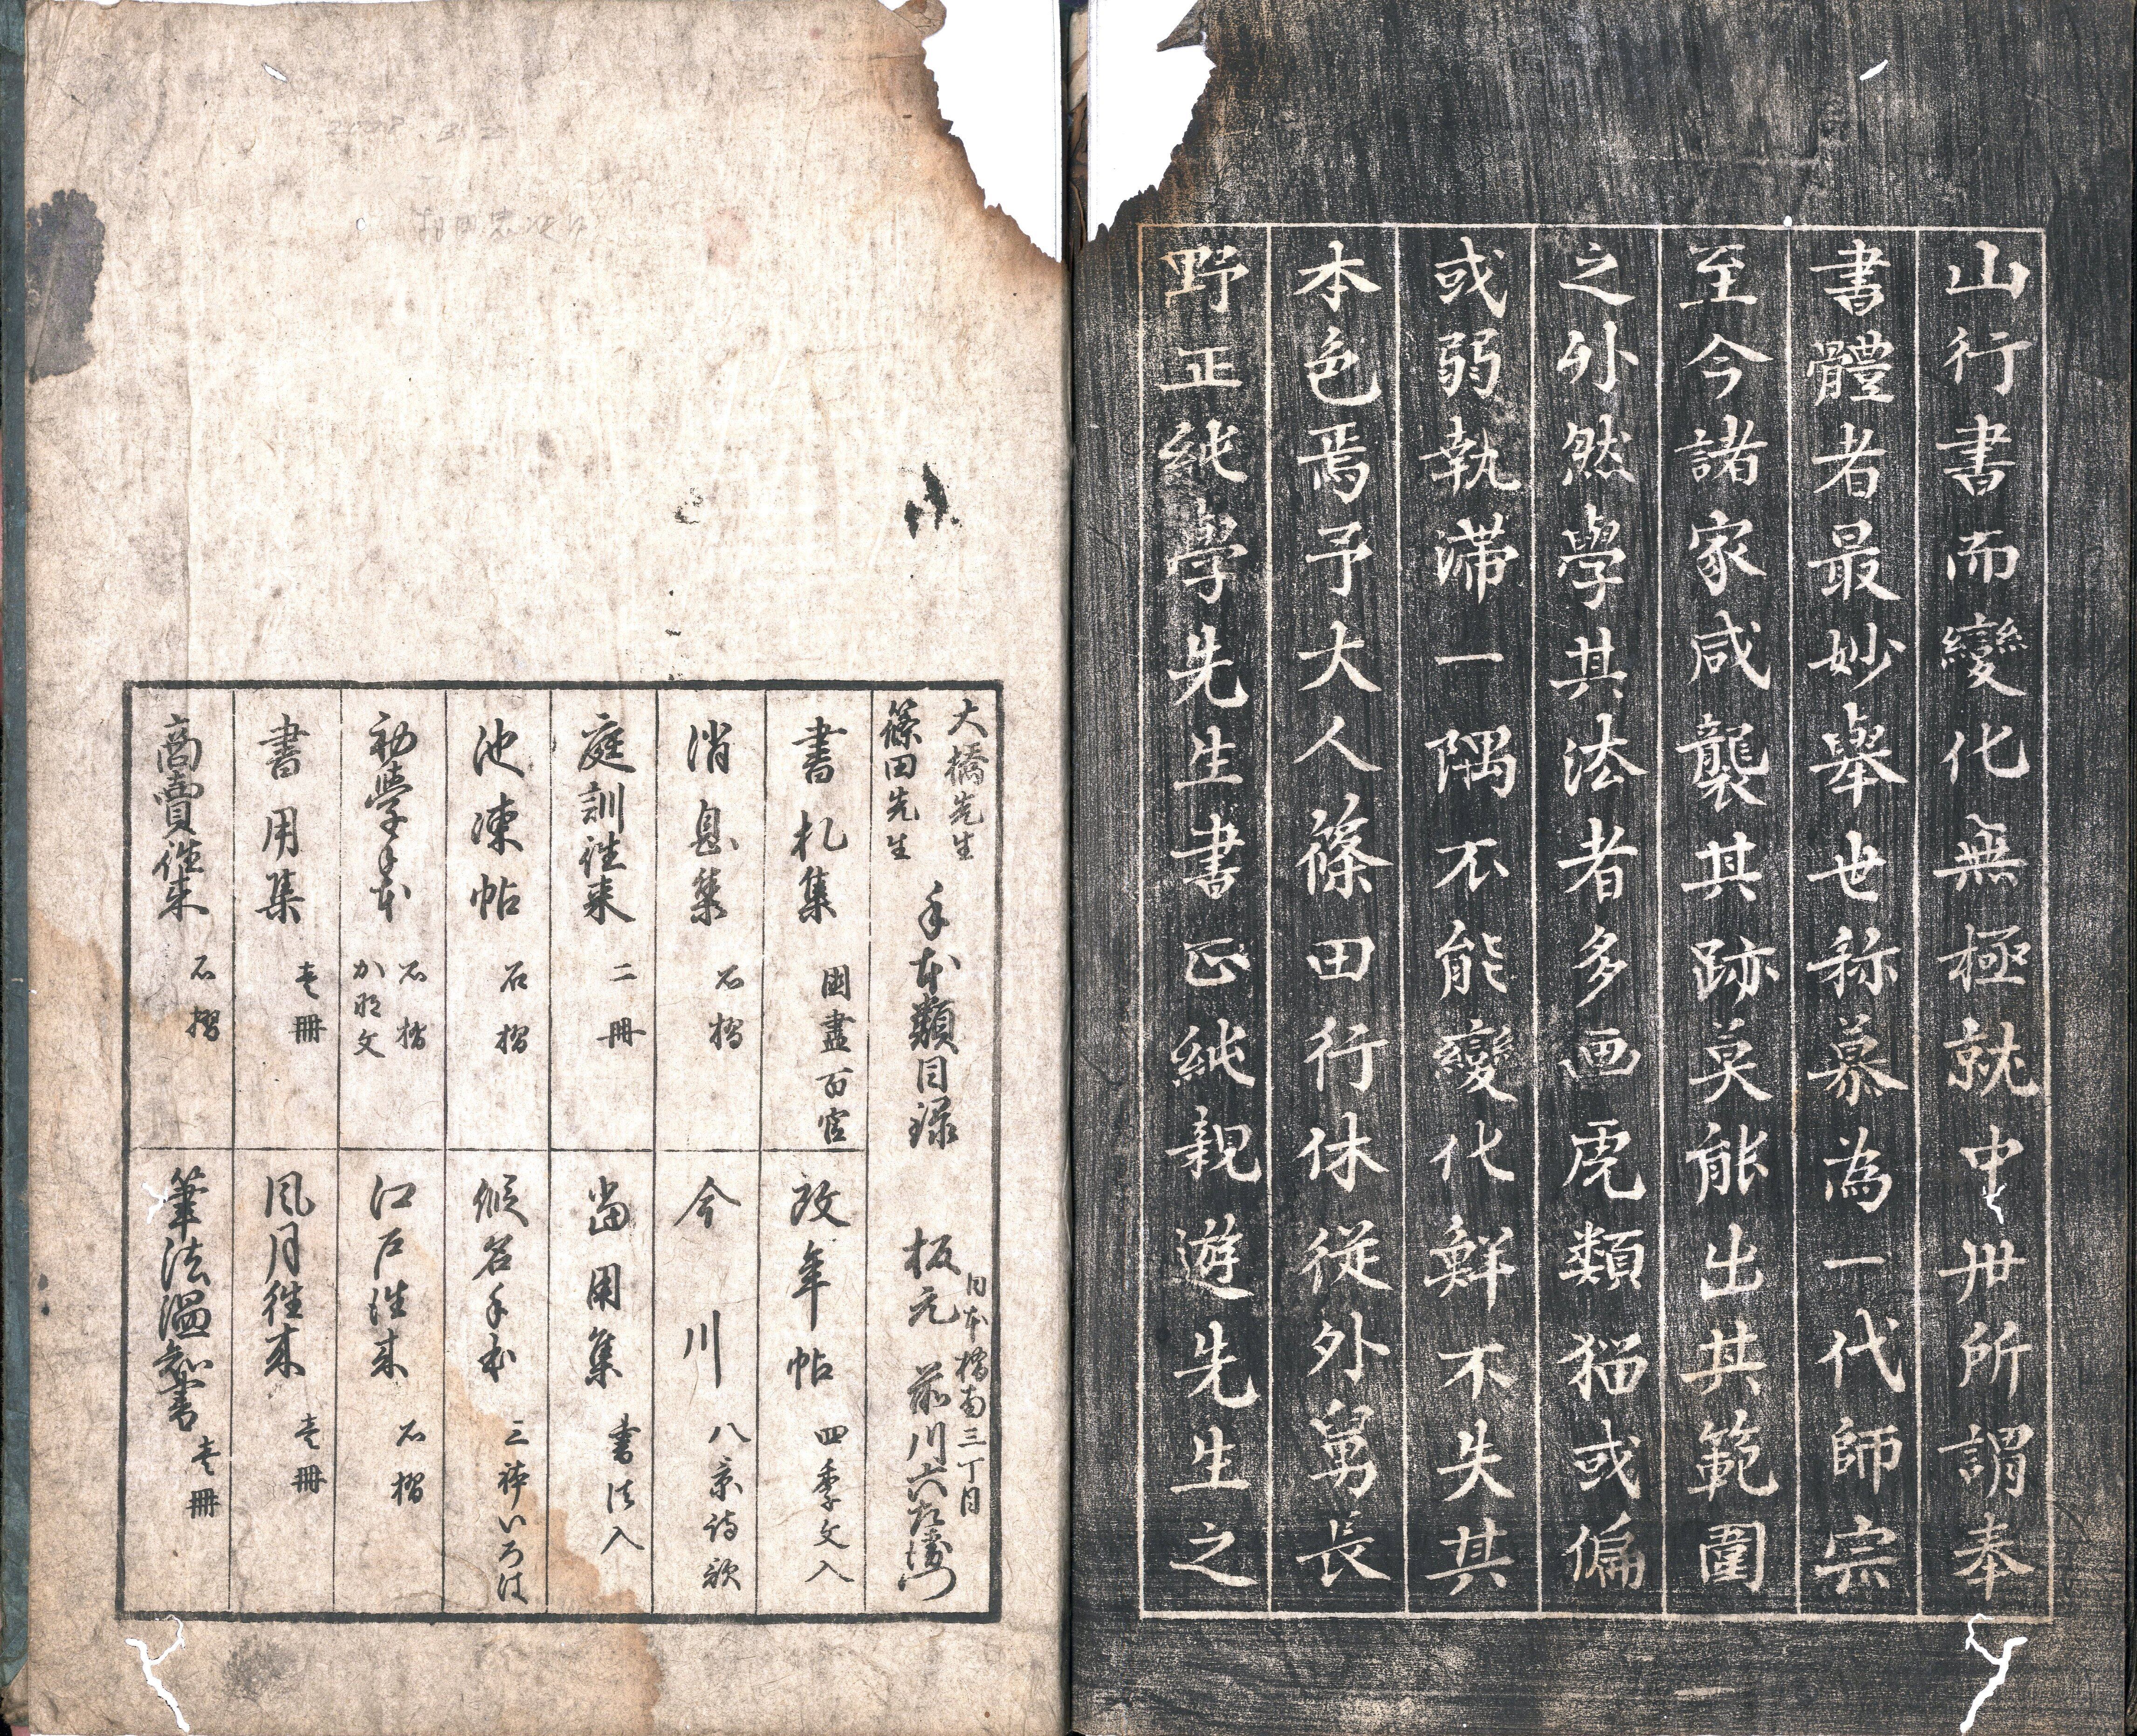 山行書而變化無極就中丗所謂奉
書體者最妙舉世称慕為一代師宗
至今諸家咸襲其跡莫能出其範圍
之外然學其法者多画虎類猫或偏
或弱執滞一隅不能變化鮮不失其
本色焉予大人篠田行休従外舅長
野正純學先生書正純親遊先生之
大橋先生
篠田先生
手本類目録
板元
日本橋南三丁目
前川六左衛門
書札集 国盡百官
改年帖 四季文入
消息集 石摺
今川 八景詩歌
庭訓往来 二冊
當用集 書法入
池凍帖 石摺
假名手本 三体いろは
初學手本 石摺 か那文
江戸往来 石摺
書用集 壱冊
風月往来 壱冊
商賣往来 石摺
筆法温知書 壱冊